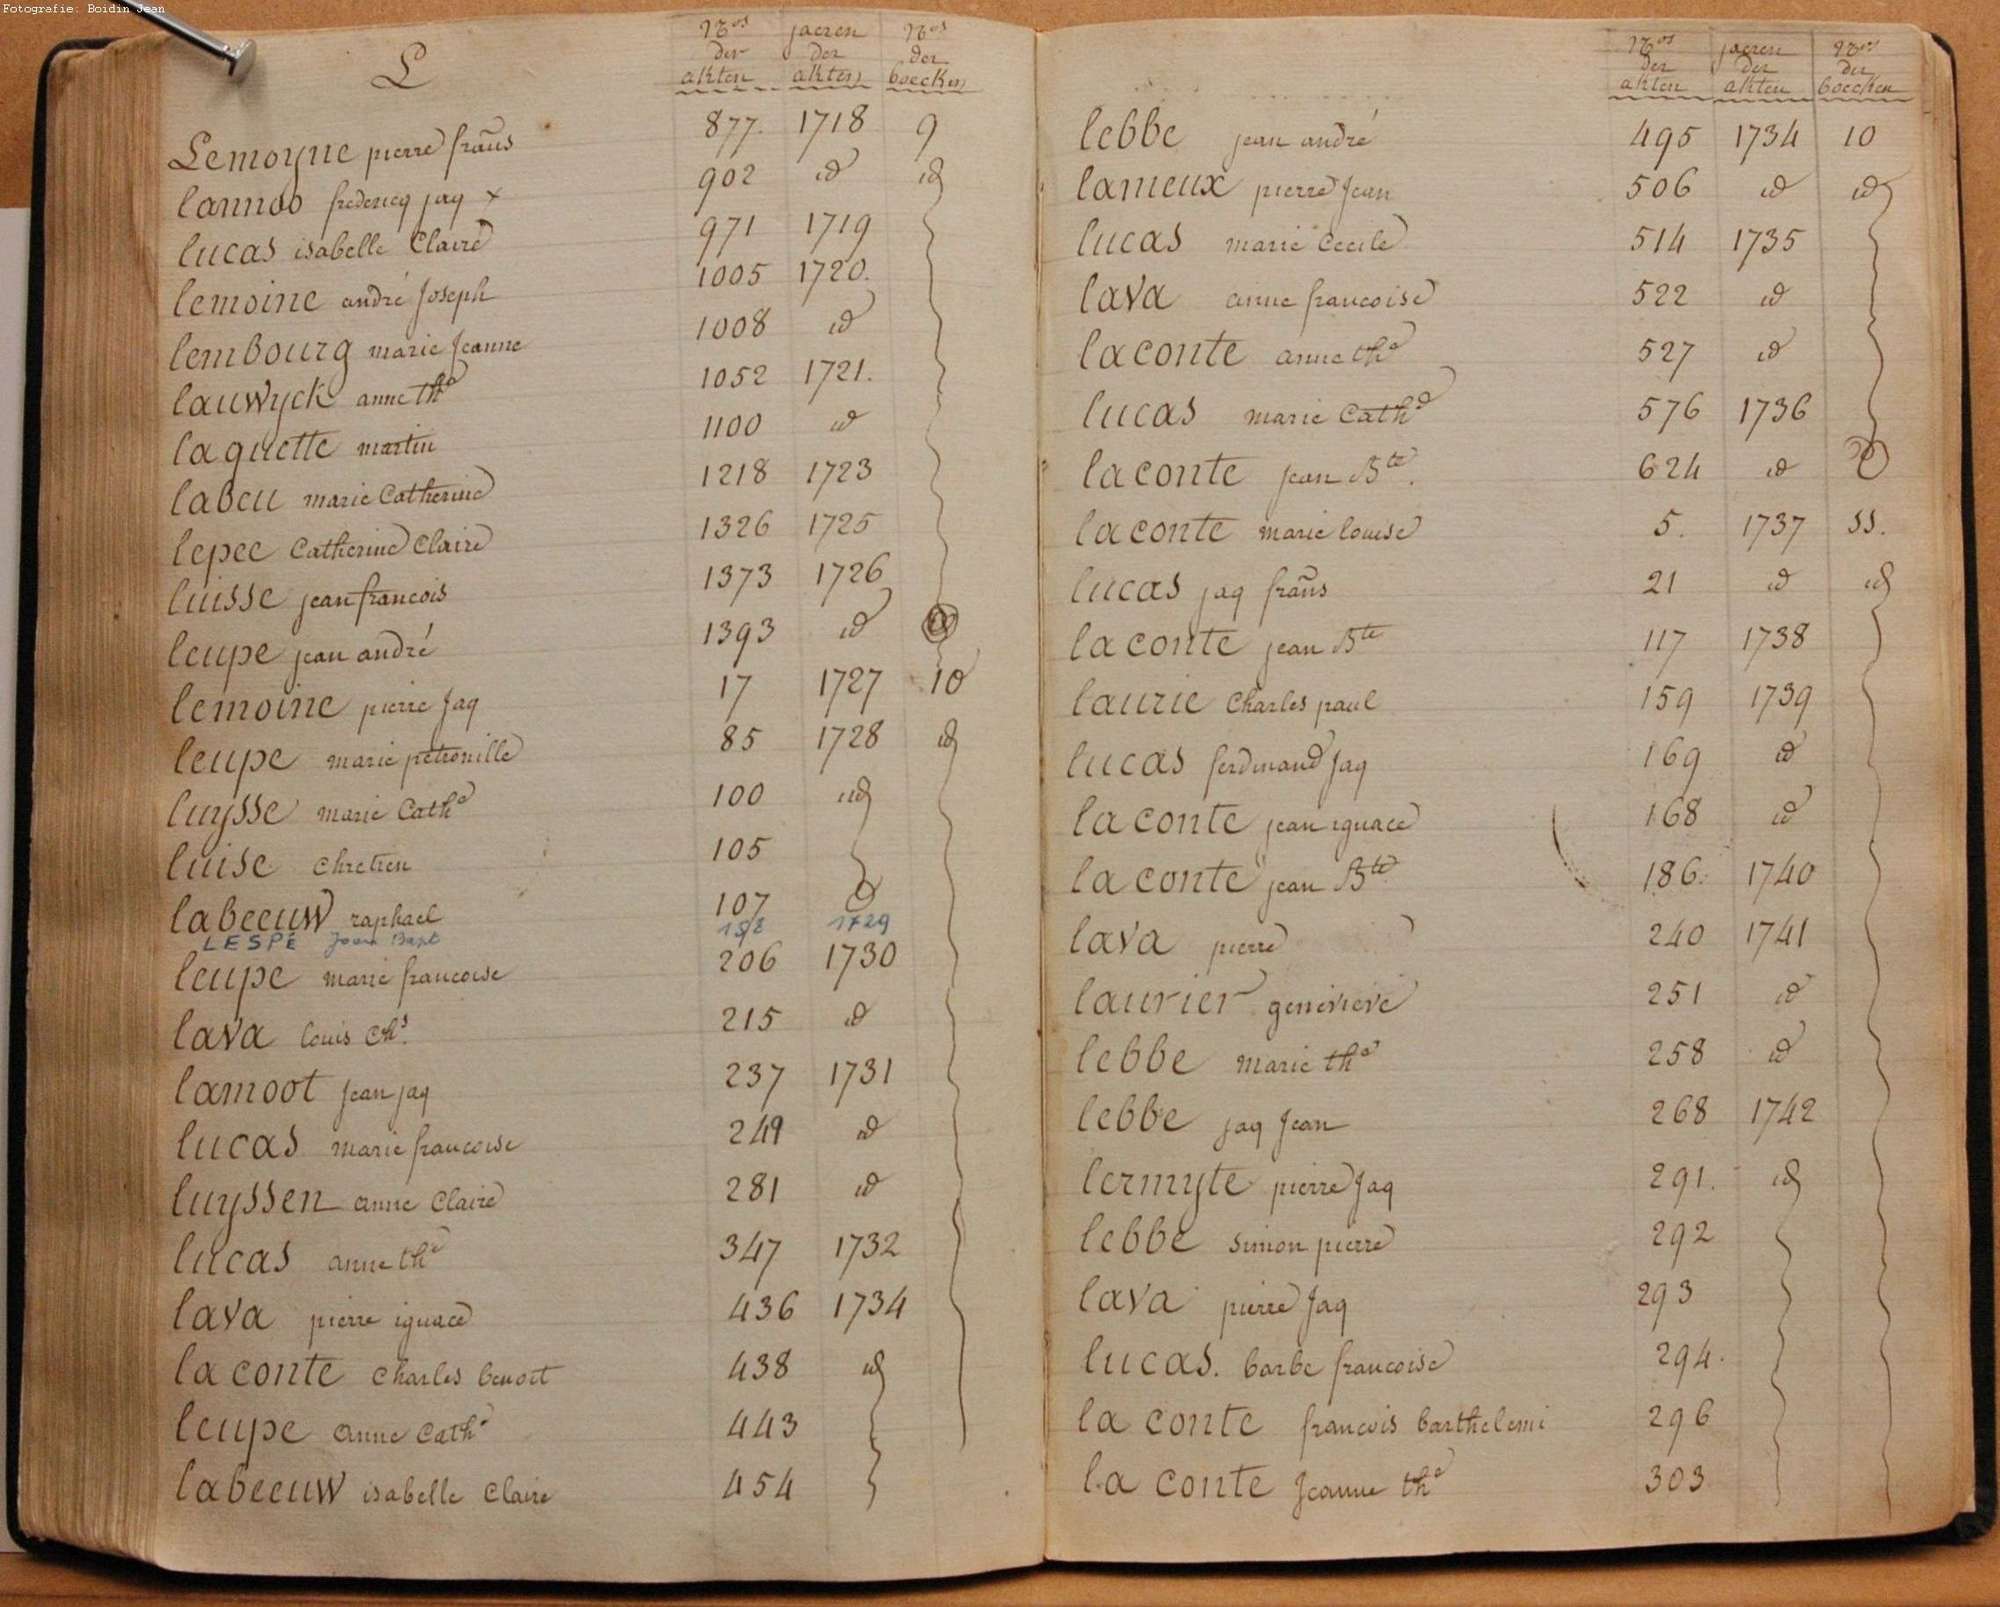 Fotografie: Boidin Jean
L
Nos der akten jaeren der akten Nos der boecken
Lemoyne pierre frans 877. 1718 9
lannoo frederiq jaq x 902 id id
lucas isabelle Claire 971 1719
lemoine andré Joseph 1005 1720.
lembourg marie Jeanne 1008 id
lauwyck anne the 1052 1721.
laquette martin 1100 id
labeu marie Catherine 1218 1723
lepee Catherine Claire 1326 1725
luisse jean francois 1373 1726
leupe jean andré 1393 id id
lemoine pierre Jaq 17 1727 10
leupe marie petronille 85 1728 id
luysse marie Cathe 100 id
luise Chretien 105
labeeuw raphael 107
LESPÉ Joan Bapt 158 1729
leupe marie francoise 206 1730
lava louis Chs. 215 id
lamoot Jean jaq 237 1731
lucas marie francoise 249 id
luyssen anne Claire 281 id
lucas anne the 347 1732
lava pierre ignace 436 1734
la conte Charles benoit 438 id
leupe anne Cathe 443
labeeuw isabelle Claire 454
Nos der akten jaeren der akten Nos der boecken
lebbe jean andré 495 1734 10
lameux pierre Jean 506 id id
lucas marie Cecile 514 1735
lava anne francoise 522 id
laconte anne the 527 id
lucas marie Cathe 576 1736
laconte jean Bte. 624 id
laconte marie louise 5. 1737 11.
lucas jaq frans 21 id id
la conte jean Bte 117 1738
laurie Charles paul 159 1739
lucas ferdinand Jaq 169 id
la conte jean ignace 168 id
la conte jean Bte 186. 1740
lava pierre 240 1741
laurier genevieve 251 id
lebbe marie the 258 id
lebbe jaq Jean 268 1742
lermyte pierre Jaq 291. id
lebbe simon pierre 292
lava pierre Jaq 293
lucas. barbe francoise 294.
la conte francois barthelemi 296
la conte Jeanne the 303